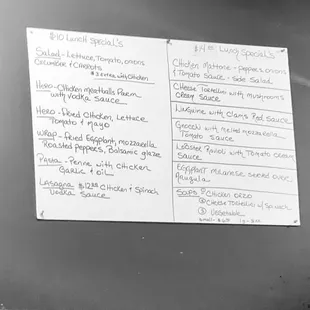 $10 Lunch Special's
Salad - Lettuce, Tomato, onions
Cucumber & Carrots
$3 extra with Chicken
Hero - Chicken Meatballs Parm
with Vodka Sauce
Hero - Fried Chicken, Lettuce
Tomato & Mayo
Wrap - Fried Eggplant, mozzarella
Roasted peppers, Balsamic glaze
Pasta - Penne with Chicken
Garlic & oil
Lasagna $12.95 Chicken & Spinach
Vodka Sauce
Lunch Special's
Chicken - peppers, onions
& Tomato Sauce - Side Salad
Cheese Tortellini with Mushrooms
Cream Sauce
Linguine with Clams Red Sauce
Gnocchi with melted mozzarella
Tomato Sauce
Lobster Ravioli with Tomato cream
Sauce
Eggplant Milanese over
Arugula
Soups ① Chicken orzo
② Cheese Tortellini w/ Spinach
③ Vegetable